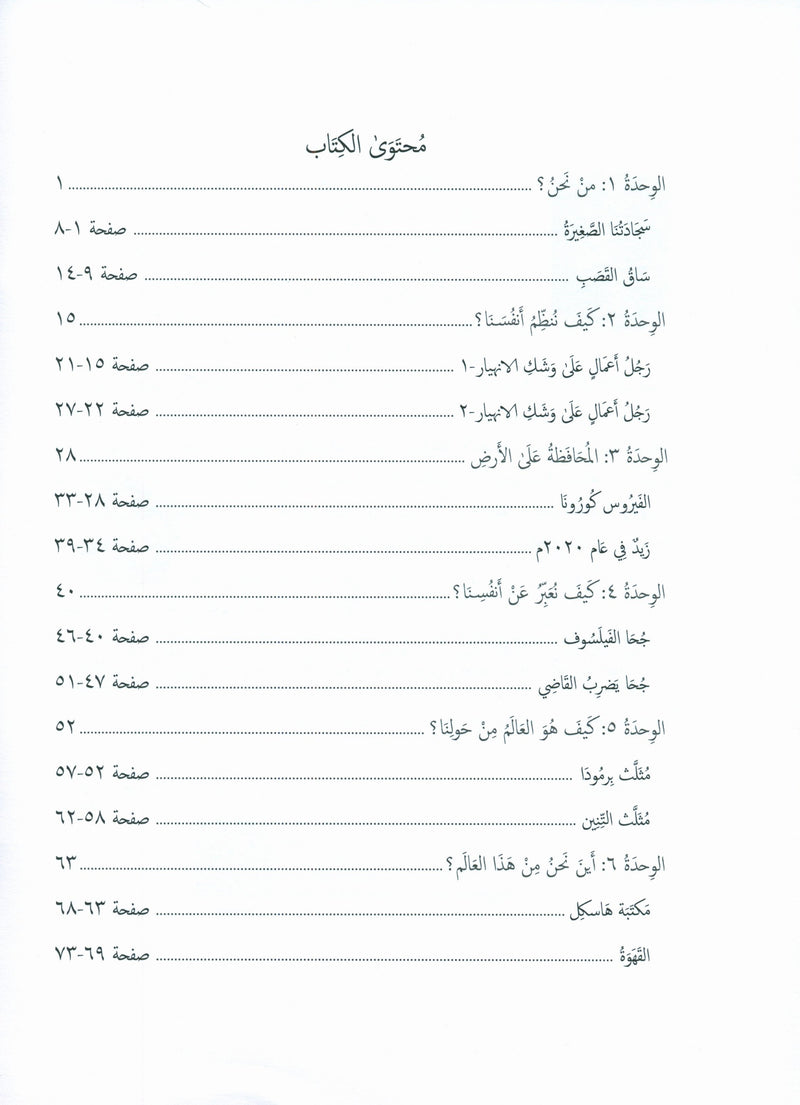 مُحتَوَىٰ الكِتَاب
الوِحدَةُ ١: منْ نَحنُ؟ ........ ١
سَجَادَتُنَا الصَّغِيرَةُ ........ صفحة ١-٨
سَاقُ القَصَبِ ........ صفحة ٩-١٤
الوِحدَةُ ٢: كَيفَ نُنظِّمُ أَنفُسَنَا؟ ........ ١٥
رَجُلُ أَعمَالٍ عَلَىٰ وَشَكِ الانهيار-١ ........ صفحة ١٥-٢١
رَجُلُ أَعمَالٍ عَلَىٰ وَشَكِ الانهيار-٢ ........ صفحة ٢٢-٢٧
الوِحدَةُ ٣: المُحَافَظةُ عَلَىٰ الأَرضِ ........ ٢٨
الفَيرُوس كُورُونَا ........ صفحة ٢٨-٣٣
زَيدٌ فِي عَام ٢٠٢٠م ........ صفحة ٣٤-٣٩
الوِحدَةُ ٤: كَيفَ نُعَبِّرُ عَنْ أَنفُسِنَا؟ ........ ٤٠
جُحَا الفَيلَسُوف ........ صفحة ٤٠-٤٦
جُحَا يَضرِبُ القَاضِي ........ صفحة ٤٧-٥١
الوِحدَةُ ٥: كَيفَ هُوَ العَالَمُ مِنْ حَولِنَا؟ ........ ٥٢
مُثَلَّث بِرمُودَا ........ صفحة ٥٢-٥٧
مُثَلَّث التِّنِين ........ صفحة ٥٨-٦٢
الوِحدَةُ ٦: أَينَ نَحنُ مِنْ هَذَا العَالَم؟ ........ ٦٣
مَكتَبَة هَاسكِل ........ صفحة ٦٣-٦٨
القَهَوَةُ ........ صفحة ٦٩-٧٣